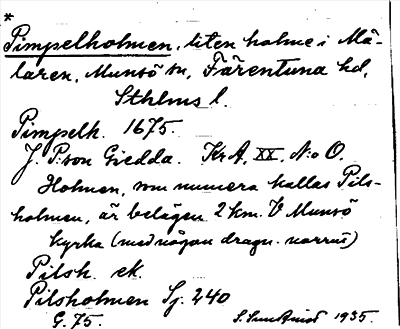 *
Pimpelholmen, liten holme i Mä-
laren, Munsö sn, Färentuna hd,
Sthlms l.
Pimpelh. 1675.
J. P:son Gedda. KrA, XX, N:o O.
Holmen, som numera kallas Pils-
holmen, är belägen 2 km. V Munsö
kyrka (med någon dragn. norrut)
Pilsh. ek.
Pilsholmen Sj. 240
G. 75. 1935.